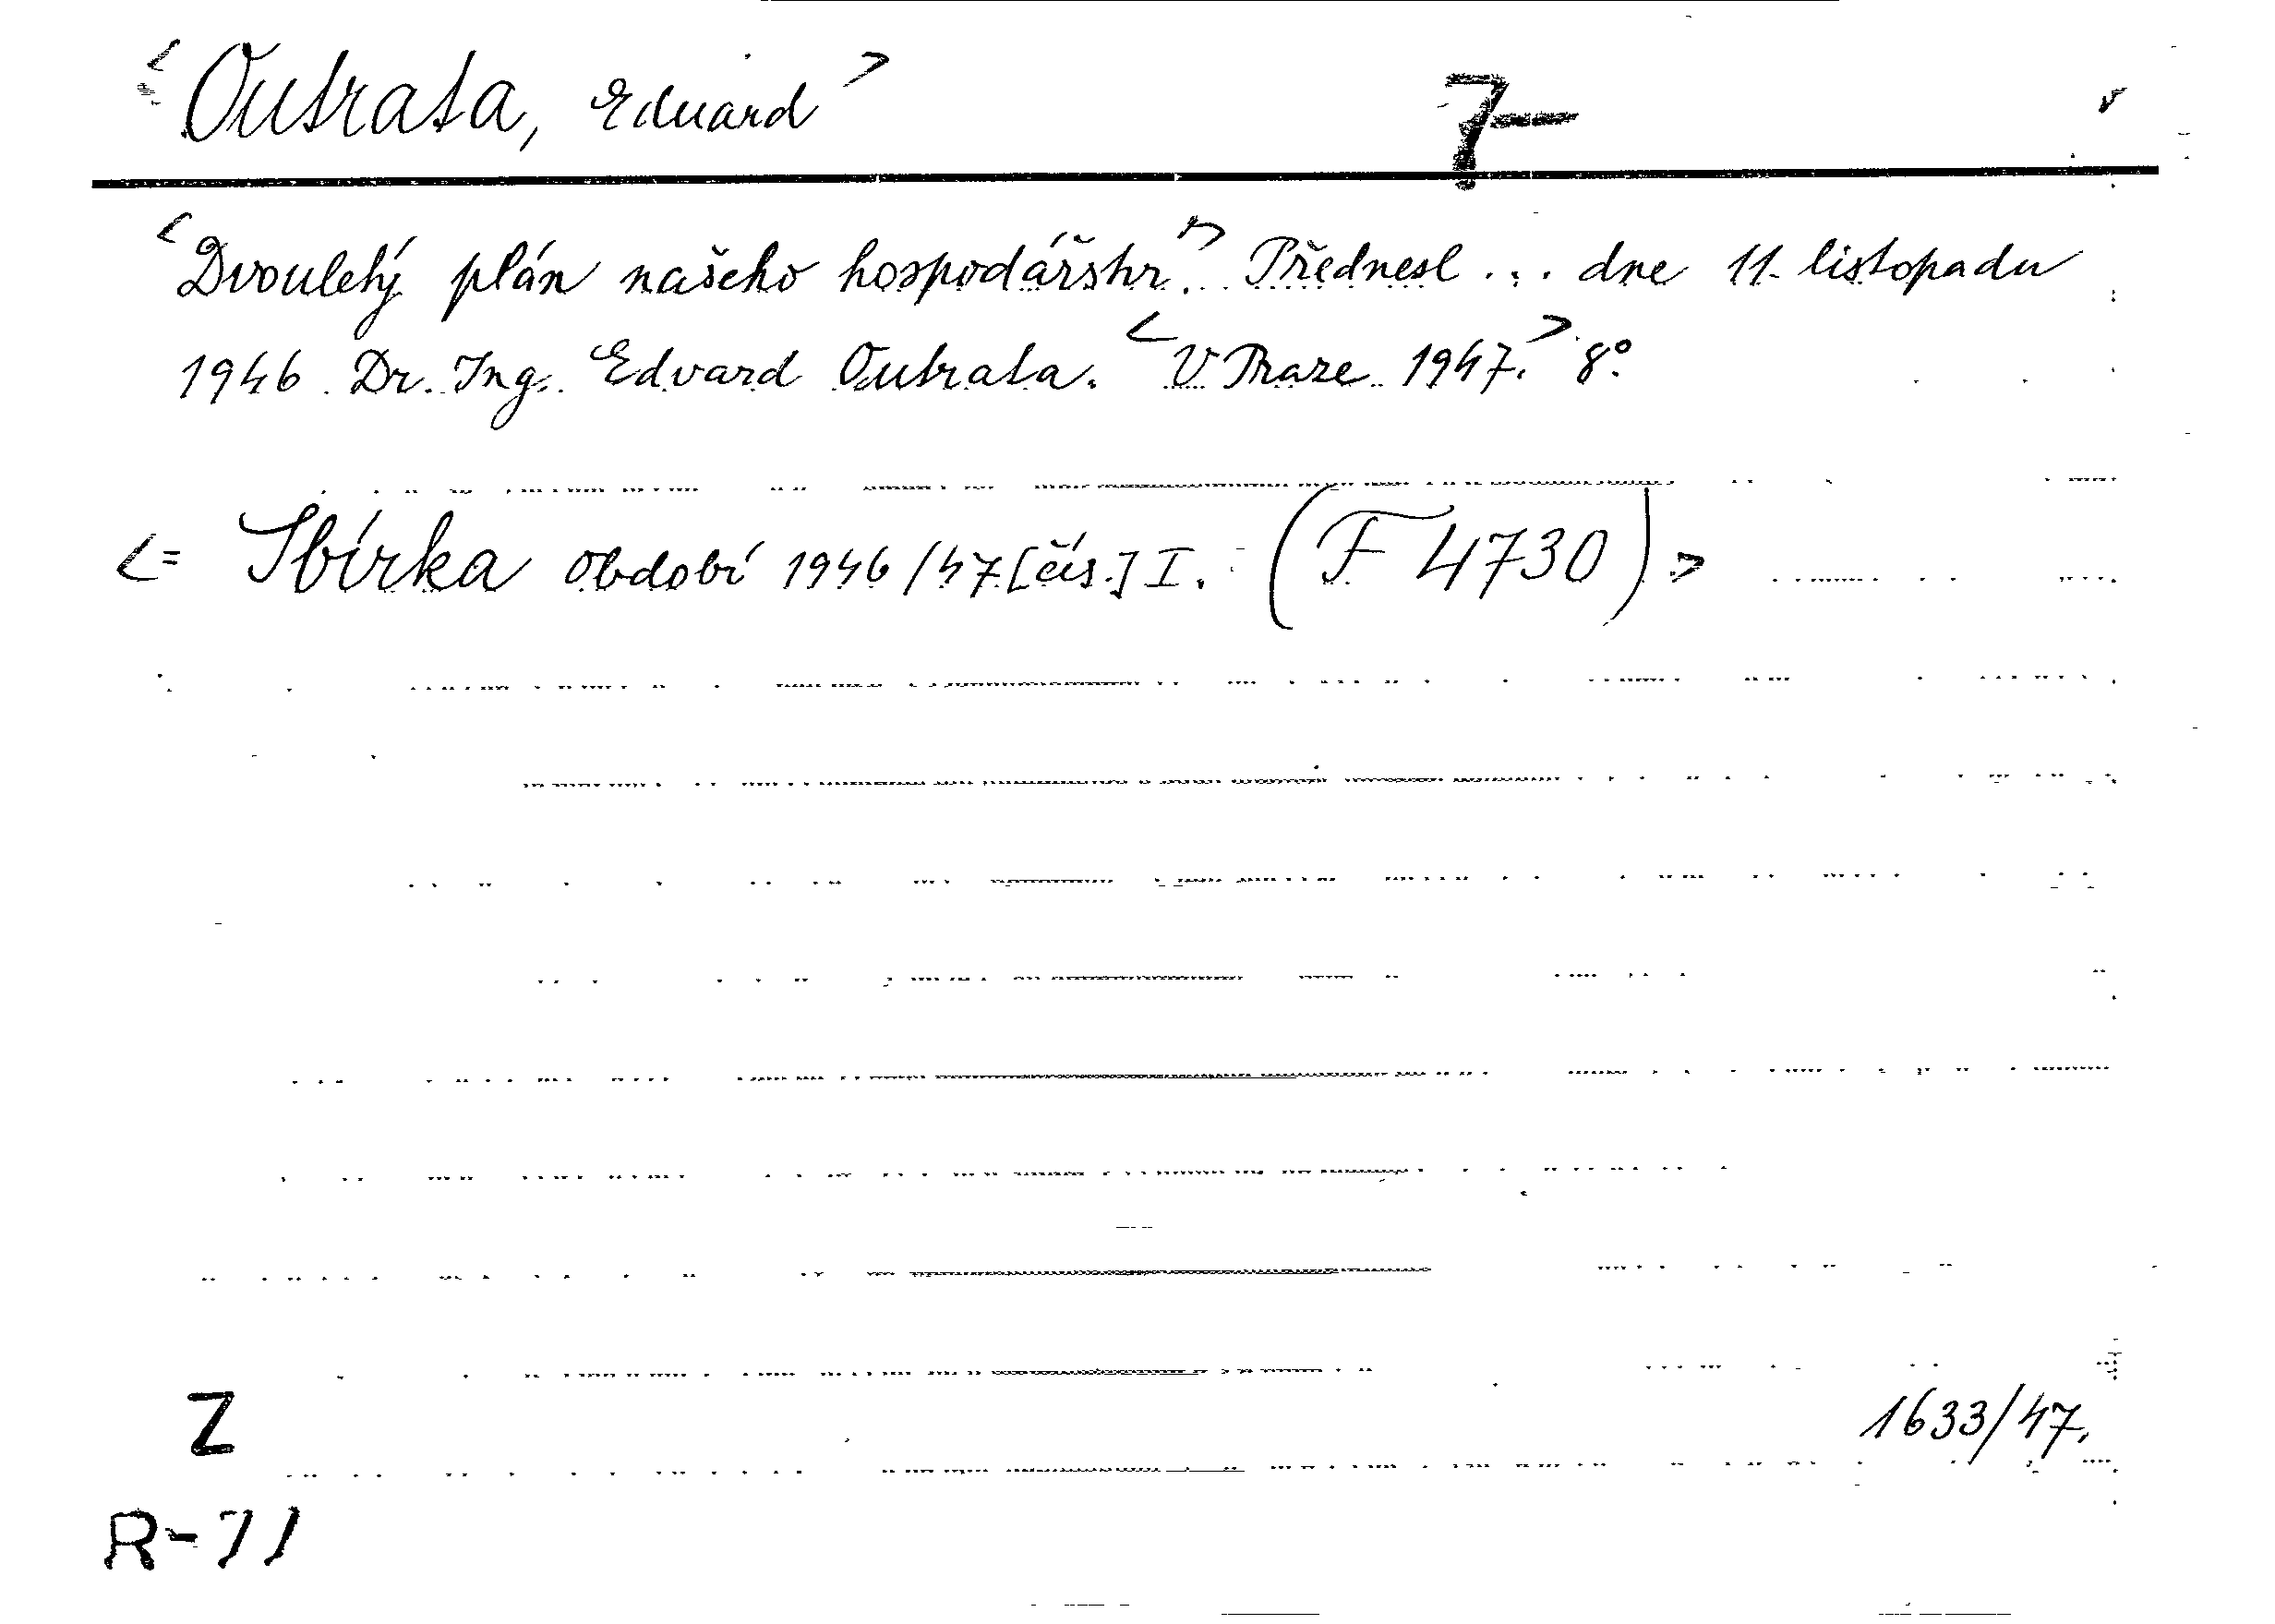 <Outrata, Eduard> 7-
<Dvouletý plán našeho hospodářství.> Přednesl ... dne 11. listopadu
1946 Dr. Ing. Edvard Outrata. <V Praze 1947.> 8°.
<= Sbírka období 1946/47 [čís.] I. (F 4730)>
Z
1633/47.
R-71